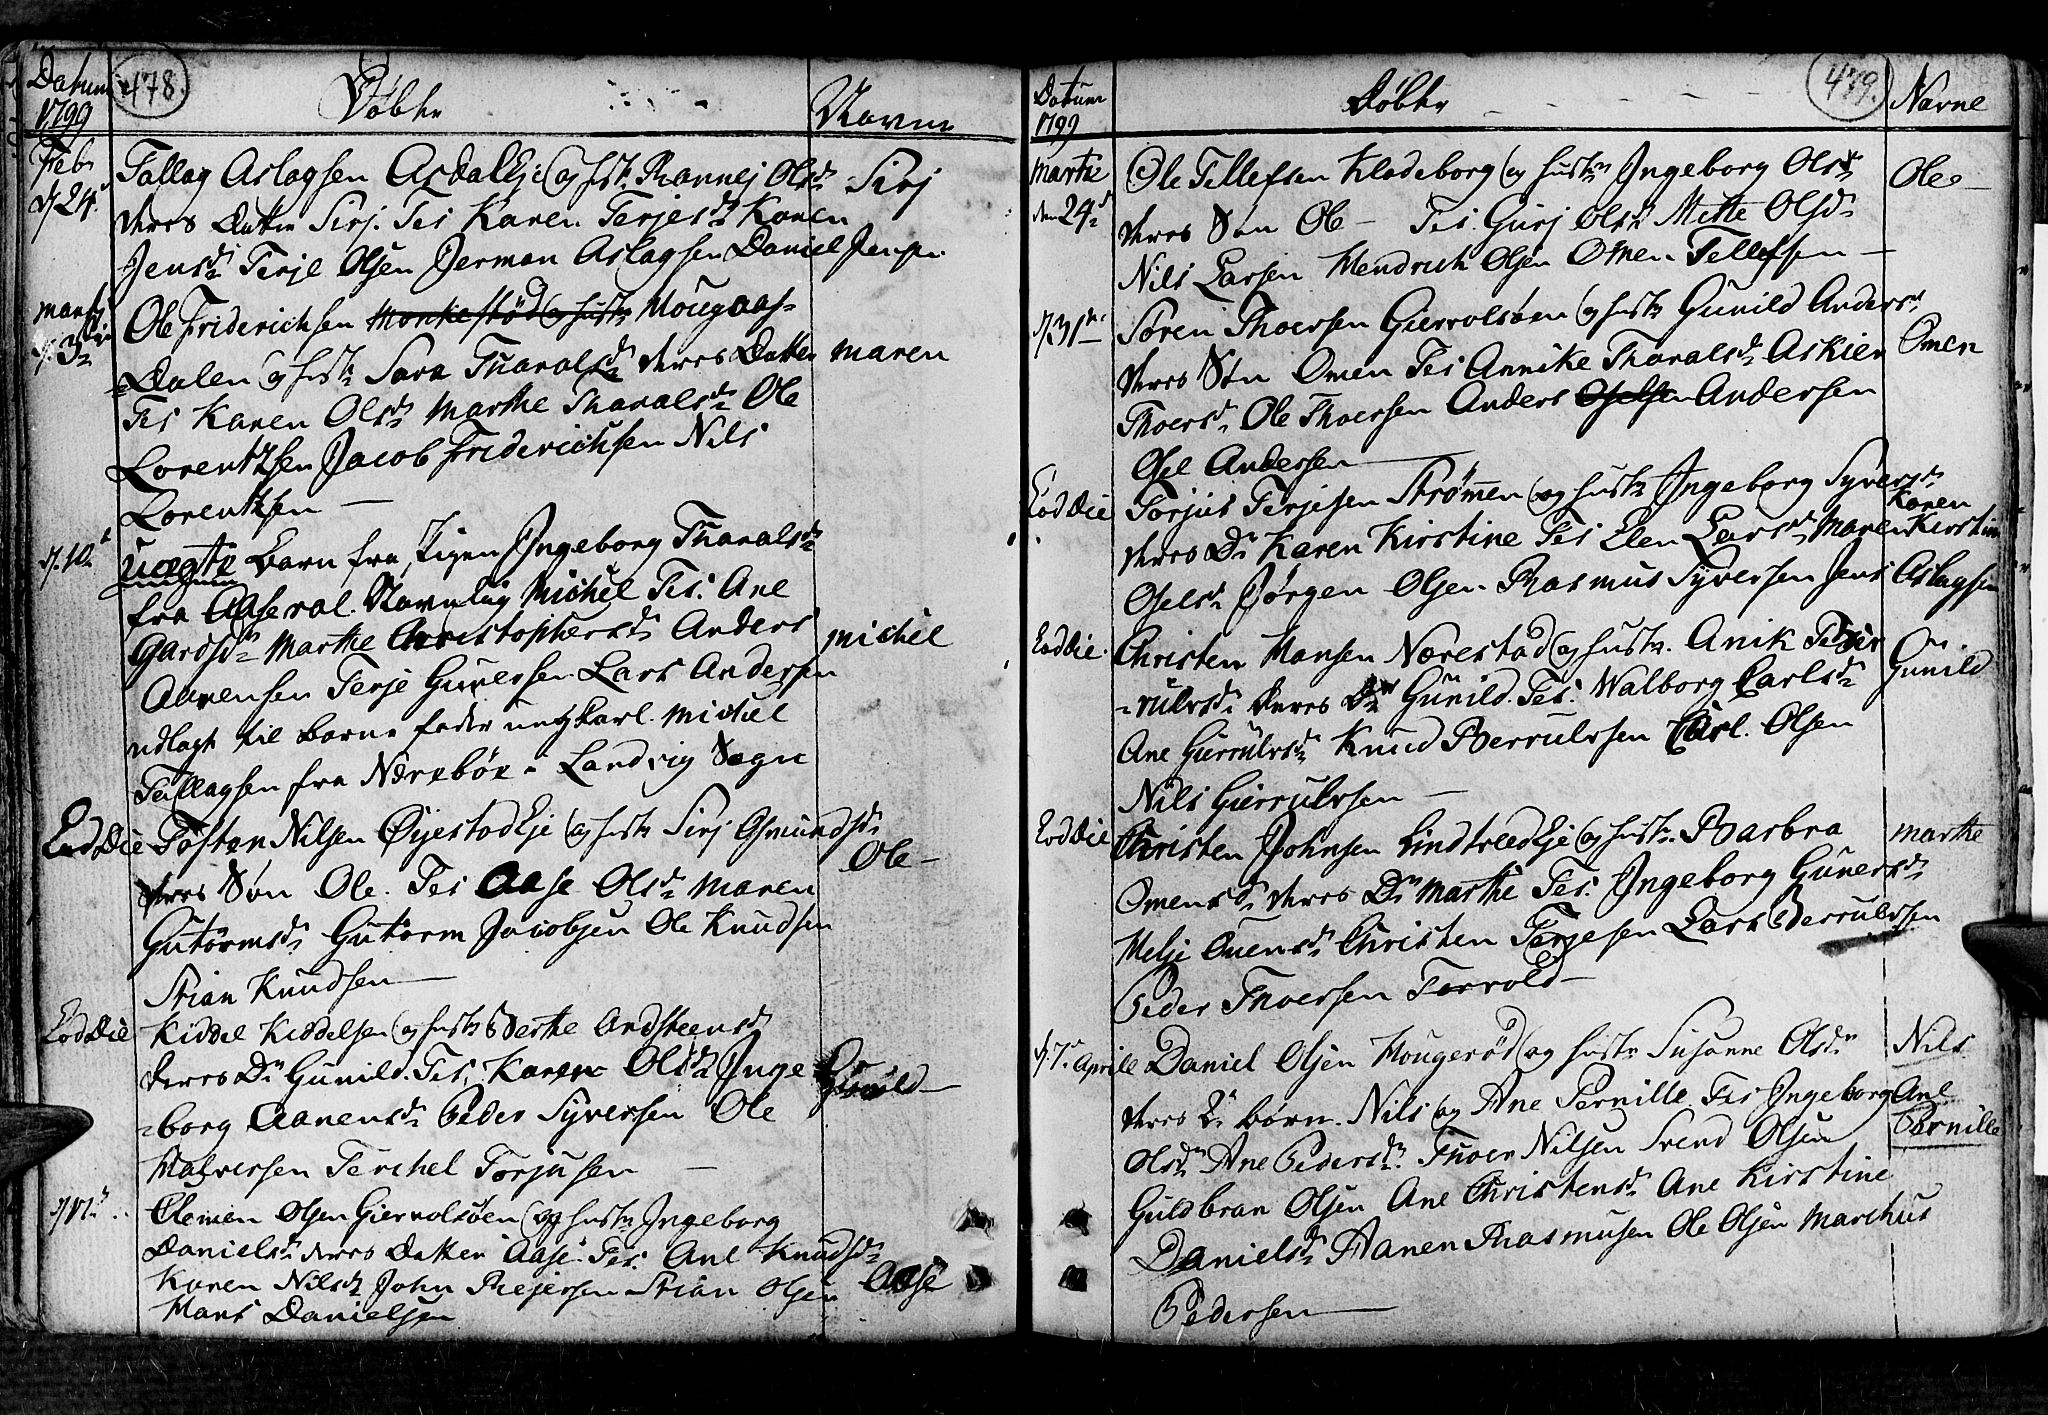 Datum 478. Döbte Navne
1799
Feb. Tallag Aslagsen Asdal Eje (og hst: Rannej Olsd: Sirj
d: 24. deres Datter Sirj. Tes Karen Terjesd: Karen
Jensd: Terje Olsen Jerman Aslagsen Daniel Jensen
Martj Ole Friderichsen Monkestöd (og hustr Hougaas-
d: 3die Dalen (og hust: Sara Tharalsd: deres Datter Maren
Tes Karen Olsd: Marthe Tharalsd: Ole
Lorentzsen Jacob Friderichsen Nils
Lorentzsen —
d. 10d uægte Barn fra Pigen Ingeborg Tharalsd:
fra Aaseral. Navnlig Michel Tes. Ane
Gardsd: Marthe Christophersd: Anders Michel
Aanensen Terje Gunersen Lars Andersen
udlagt til Barne fader ungkarl. Michel
Tallagsen fra Næreböe - Landvig Sogn
Eod Die Tosten Nilsen Öijestad Eje (og hust: Sirj Osmundsd:
deres Sön Ole. Tes Aase Olsd: Maren Ole —
Gutormsd: Gutorm Jacobsen Ole Knudsen
Stian Knudsen —
Eod Die Kiddel Kiddelsen (og hustr: Berthe Andsteensd
deres Dr Gunild. Tes. Karen Olsd: Inge Gunild —
=borg Aanensd: Peder Syversen Ole
Halversen Terchel Torjusen —
d: 17d Clemen Olsen Gierrolsöen (og hustr Ingeborg
Danielsd: deres Datter Aase. Tes. Ane Knudsd:
Karen Nilsd: John Reiersen Stian Olsen Aase
Hans Danielsen
Datum Döbte 479. Navne
1799
Martie Ole Tellefsen Kladeborg (og hustr Ingeborg Olsd Ole —
den 24d deres Sön Ole — Tes. Gurj Olsd: Mette Olsd:
Nils Larsen Hendrich Olsen Omen Tellefsen —
d: 31te Sören Thoersen Gierrolsöen (og hustr Gunild Andersd
deres Sön Omen Tes Annike Tharalsd: Askier Omen
Thoersd: Ole Thoersen Anders Oselsen Andersen
Osel Andersen —
Eod Die Torjus Terjesen Strömen (og hustr Ingeborg Syversd: Karen
deres Dr Karen Kirstine Tes Elen Larsd: Maren Kirstine
Oselsd: Jörgen Olsen Rasmus Syversen Jens Aslagsen
Eod Die. Christen Hansen Nærestad (og hustr. Anik Gunild
=rulvsd: deres Dr Gunild. Tes. Walborg Carlsd:
Ane Gierrulvsd: Knud Berrulvsen Carl. Olsen
Nils Gierrulvsen —
Eod Die Christen Johnsen Lindtved Eje (og hustr. Barbra Marthe
Omensd: deres Dr Marthe Tes. Ingeborg Gunersd:
Helje Ouensd: Christen Terjesen Lars Berrulvsen
Peder Thoersen Torvold —
d. 7. Aprill Daniel Olsen Hougeröd (og hustr Susanne Olsdr Nils
deres 2 Börn. Nils (og Ane Pernille. Tes Ingeborg Ane
Olsdr Ane Pedersd:. Thoer Nilsen Svend Olsen Pernille
Guldbran Olsen Ane Christensd: Ane Kirstine
Danielsd: Aanen Rasmusen Ole Olsen Marchus
Pedersen —